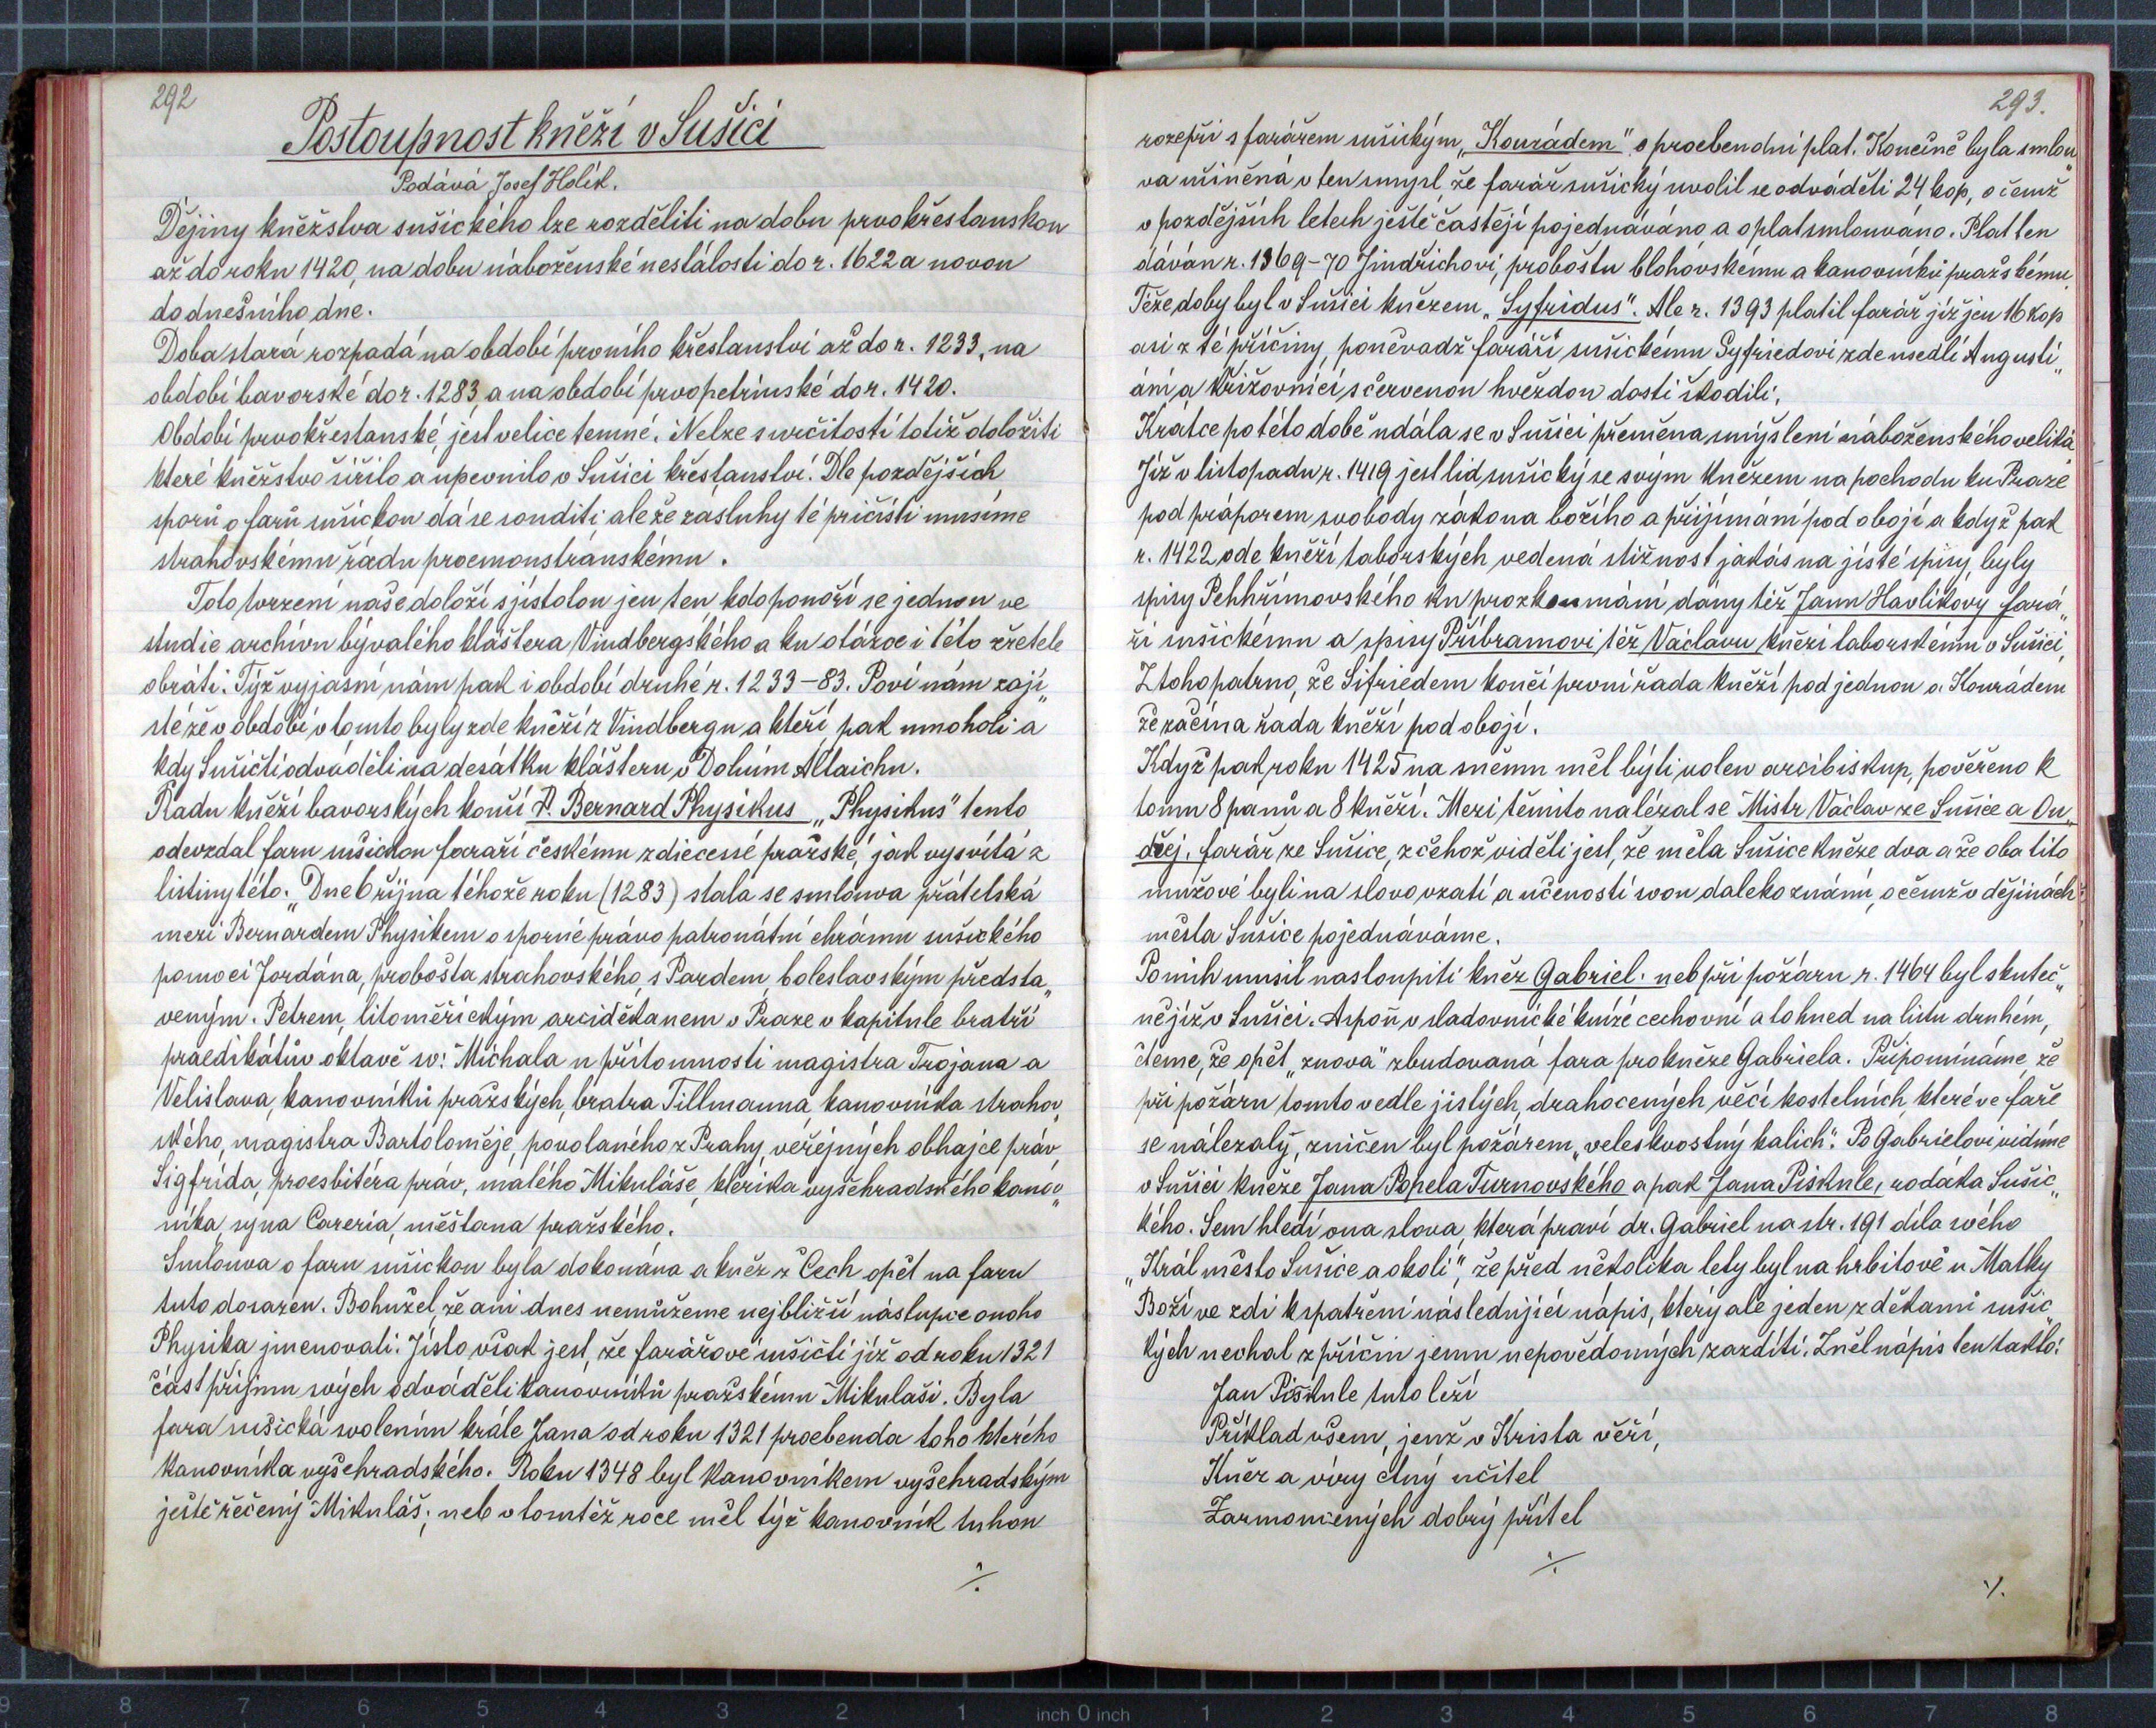 292
Postoupnost kněží v Sušici
Podává Josef Holík.
Dějiny kněžstva sušického lze rozděliti na dobu prvokřestanskou
až do roku 1420, na dobu náboženské nestálosti do r. 1622 a novou
do dnešního dne.
Doba stará rozpadá na období prvního křestanství až do r. 1233, na
období bavorské do r. 1283, a na období prvopetrinské do r. 1420.
Období prvokřestanské, jest velice temné. Nelze s určitostí totiž doložiti
které kněžstvo šířilo a upevnilo v Sušici křestanství. Dle pozdějších
sporů o faru sušickou dá se souditi ale že zásluhy té přičísti musíme
strahovskému řádu proemonstránskému.
Toto tvrzení naše doloží s jistotou jen ten kdo ponoří se jednou ve
studie archivu bývalého kláštera Vindbergského a ku otázce i této zřetele
obrátí. Týž vyjasní nám pak i období druhé r. 1233-83. Poví nám zaji„
sté že v období v tomto byly zde kněží z Vindbergu a kteří, pak mnoholi a
kdy Sušičtí odváděli na desátku klášteru v Dolním Altaichu.
Řadu kněží bavorských končí P. Bernard Physikus „Physikus" tento
odevzdal faru sušickou faráři českému z diecessé pražské, jak vysvítá z
listiny této: „Dne 6 října téhože roku (1283) stala se smlouva přátelská
mezi Bernardem Physikem o sporné právo patronátní chrámu sušického
pomocí Jordána, probošta strahovského, s Pardem, boleslavským předsta„
veným. Petrem, litoměřickým arciděkanem v Praze v kapitule bratří
praedikátův oktavě sv: Michala u přítomnosti magistra Trojana a
Velislava, kanovníků pražských, bratra Tillmanna, kanovníka strahov„
ského, magistra Bartoloměje, povolaného z Prahy, veřejných obhajce práv,
Sigfrida, proesbitéra práv, malého Mikuláše, klerika vyšehradského kanov„
níka, syna Careria, měštana pražského.
Smlouva o faru sušickou byla dokonána a kněz z Čech opět na faru
tuto dosazen. Bohužel, že ani dnes nemůžeme nejbližší nástupce onoho
Physika jmenovati. Jisto však jest, že farářové sušičtí již od roku 1321
část příjmu svých odváděli kanovníků pražskému Mikuláši. Byla
fara sušická svolením krále Jana od roku 1321 proebenda toho kterého
kanovníka vyšehradského. Roku 1348 byl kanovníkem vyšehradským
ještě řečený Mikuláš; neb v tomtéž roce měl týž kanovník tuhou
./.
293.
rozepři s farářem sušickým „Konrádem" o proebendní plat. Konečně byla smlou„
va učiněná v ten smysl že farář sušický uvolil se odváděti 24 kop, o čemž
v pozdějších letech ještě častěji pojednáváno a o plat smlouváno. Plat ten
dáván r. 1369-70 Jindřichovi, proboštu blohovskému a kanovníků pražskému.
Téže doby byl v Sušici knězem „Syfridus". Ale r. 1393 platil farář již jen 16 kop
asi z té příčiny, poněvadž faráři sušickému Syfriedovi zde usedlí Augusti„
áni a Křižovníci s červenou hvězdou dosti škodili.
Krátce po této době udála se v Sušici přeměna smýšlení náboženského veliká
Již v listopadu r. 1419 jest lid sušický se svým knězem na pochodu ku Praze
pod práporem svobody zákona božího a přijímání pod obojí a když pak
r. 1422 ode kněží taborských vedená stížnost jakás na jisté spisy, byly
spisy Pehhřimovského ku prozkoumání dány též Janu Havlíkovy fará„
ři sušickému a spisy Příbramovi též Václavu knězi taborskému v Sušici.
Z toho patrno, že Sifriedem končí první řada kněží pod jednou a Konrádem
že začíná řada kněží pod obojí.
Když pak roku 1425 na sněmu měl býti volen arcibiskup, pověřeno k
tomu 8 panů a 8 kněží. Mezi těmito nalézal se Mistr Václav ze Sušice a On„
dřej, farář ze Sušice, z čehož viděti jest, že měla Sušice kněze dva a že oba tito
mužové byli na slovo vzatí a učeností svou daleko známi, o čemž v dějinách
města Sušice pojednáváme.
Po nich musil nastoupiti kněz Gabriel. neb při požáru r. 1464 byl skuteč„
ně již v Sušici. Aspoň v sladovnické knize cechovní a to hned na listu druhém,
čteme, že opět „znova" zbudovaná fara pro kněze Gabriela. Připomínáme, že
při požáru tomto vedle jistých, drahocených věcí kostelních, které ve faře
se nálezaly, zničen byl požárem „veleskvostný kalich". Po Gabrielovi vidíme
v Sušici kněze Jana Popela Turnovského a pak Jana Piskule, rodáka Sušic„
kého. Sem hledí ona slova, která praví dr. Gabriel na str. 191 díla svého
„Král město Sušice a okolí", že před několika lety byl na hřbitově u Matky
Boží ve zdi k spatření následující nápis, který ale jeden z děkanů sušic„
kých nechal z příčin jemu nepovědomých zazdíti. Zněl nápis ten takto:
Jan Piškule tuto leží
Příklad všem, jenž v Krista věří,
Kněz a víry ctný učitel
Zarmoucených dobrý přítel
./.
./.